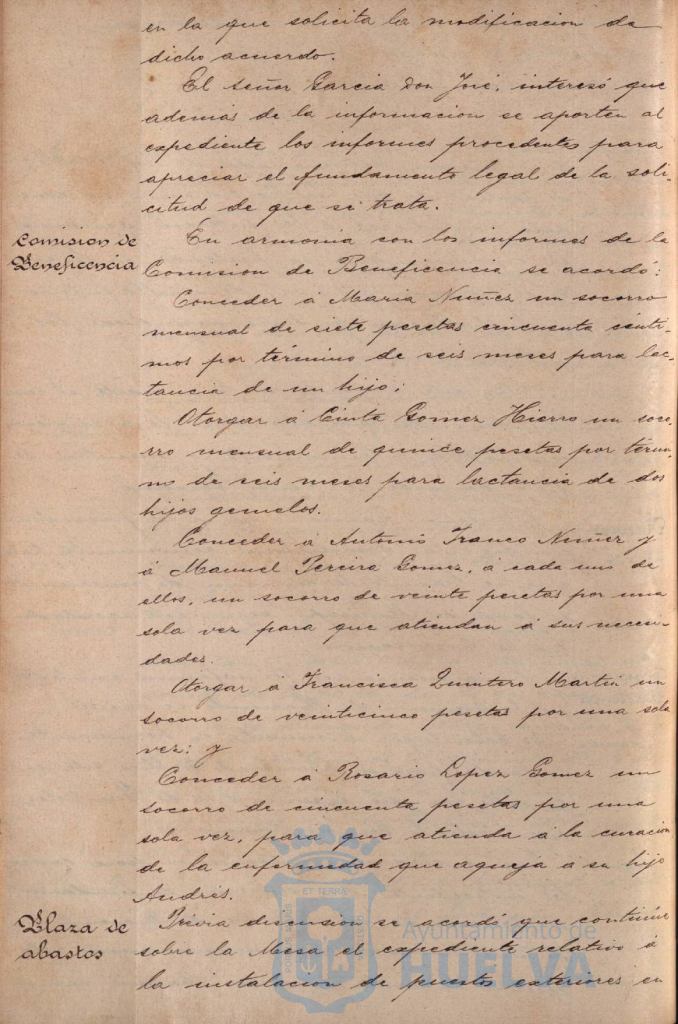 en la que solicita la modificacion de
dicho acuerdo.
El señor Garcia Don José, interesó que
ademas de la informacion se aporten al
expediente los informes procedentes para
apreciar el fundamento legal de la soli-
citud de que se trata.
Comision de
Beneficencia
En armonia con los informes de la
Comision de Beneficencia se acordó:
Conceder á Maria Nuñez un socorro
mensual de siete pesetas cincuenta cénti-
mos por término de seis meses para lac-
tancia de un hijo;
Otorgar á Cinta Gomez Hierro un soco-
rro mensual de quince pesetas por térmi-
no de seis meses para lactancia de dos
hijos gemelos.
Conceder á Antonio Franco Nuñez y
á Manuel Pereira Gomez, á cada uno de
ellos, un socorro de veinte pesetas por una
sola vez para que atiendan á sus necesi-
dades.
Otorgar á Francisca Quintero Martin un
socorro de veinticinco pesetas por una sola
vez; y
Conceder á Rosario Lopez Gomez un
socorro de cincuenta pesetas por una
sola vez, para que atienda á la curacion
de la enfermedad que aqueja á su hijo
Andrés.
Plaza de
abastos
Prévia discusion se acordó que continúe
sobre la Mesa el expediente relativo á
la instalacion de puestos exteriores en
Ayuntamiento de
HUELVA